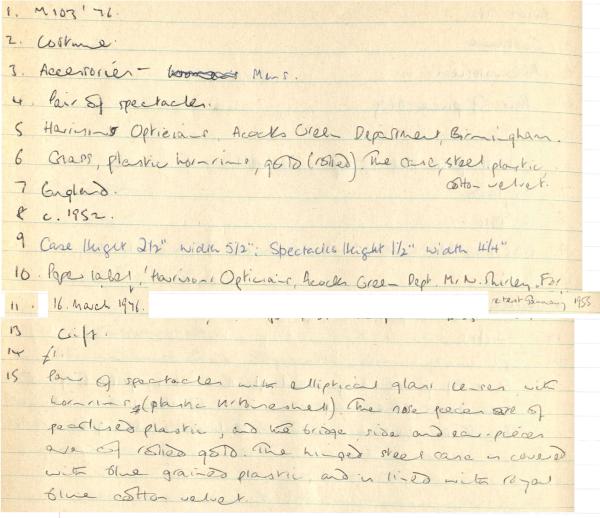 1. M103'76.
2. Costume.
3. Accessories - Mens.
4. Pair of spectacles.
5 Harrisons Opticians, Acocks Green Department, Birmingham.
6 Glass, plastic hornrims, gold (rolled). The case, steel, plastic,
cotton velvet.
7 England.
8 c. 1952.
9 Case Height 2½" width 5½": Spectacles Height 1½" width 4¼"
10. Paper label, 'Harrisons Opticians, Acocks Green Dept. Mr. N. Shirley. For
11. 16. March 1976. retest January 1955
13 Gift.
14 £1.
15 Pair of spectacles with elliptical glass lenses with
hornrims (plastic tortoiseshell). The nose pieces are of
pearlised plastic, and the bridge, side and ear-pieces
are of rolled gold. The hinged steel case is covered
with blue grained plastic, and is lined with royal
blue cotton velvet.